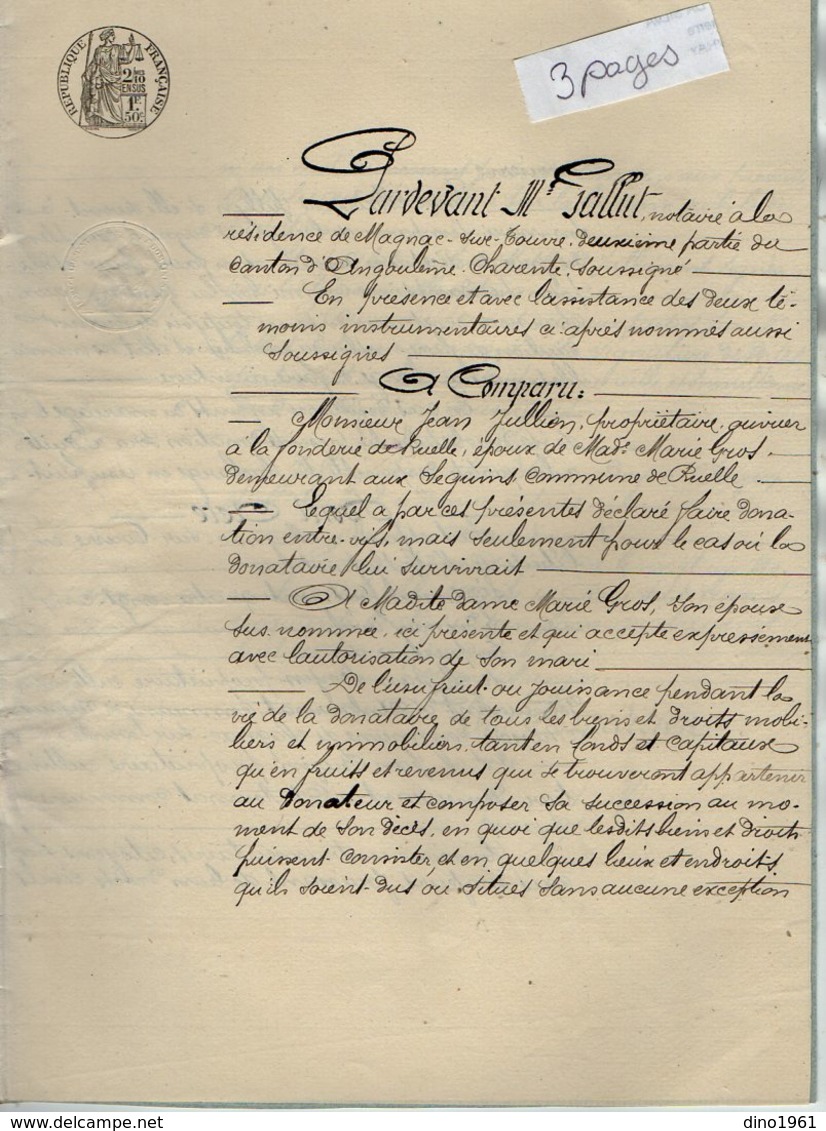 RÉPUBLIQUE FRANÇAISE
2/10
EN SUS
1F
50c
3 pages
Pardevant Me Gallut, notaire à la
résidence de Magnac-sur-Touvre, deuxième partie du
canton d'Angoulême, Charente, soussigné
En présence et avec l'assistance des deux té-
moins instrumentaires ci-après nommés aussi
soussignés
A Comparu:
Monsieur Jean Jullion, propriétaire, ouvrier
à la fonderie de Ruelle, époux de Made Marie Gros,
demeurant aux Seguins, commune de Ruelle.
Lequel a par ces présentes déclaré faire dona-
tion entre-vifs, mais seulement pour le cas où la
donataire lui survivrait
A Madite dame Marie Gros, son épouse
sus-nommée, ici présente et qui accepte expressément
avec l'autorisation de son mari
De l'usufruit ou jouissance pendant la
vie de la donataire de tous les biens et droits mobi-
liers et immobiliers, tant en fonds et capitaux
qu'en fruits et revenus qui se trouveront appartenir
au donateur et composer sa succession au mo-
ment de son décès, en quoi que lesdits biens et droits
puissent consister, et en quelques lieux et endroits
qu'ils soient dus ou situés sans aucune exception
dino1961